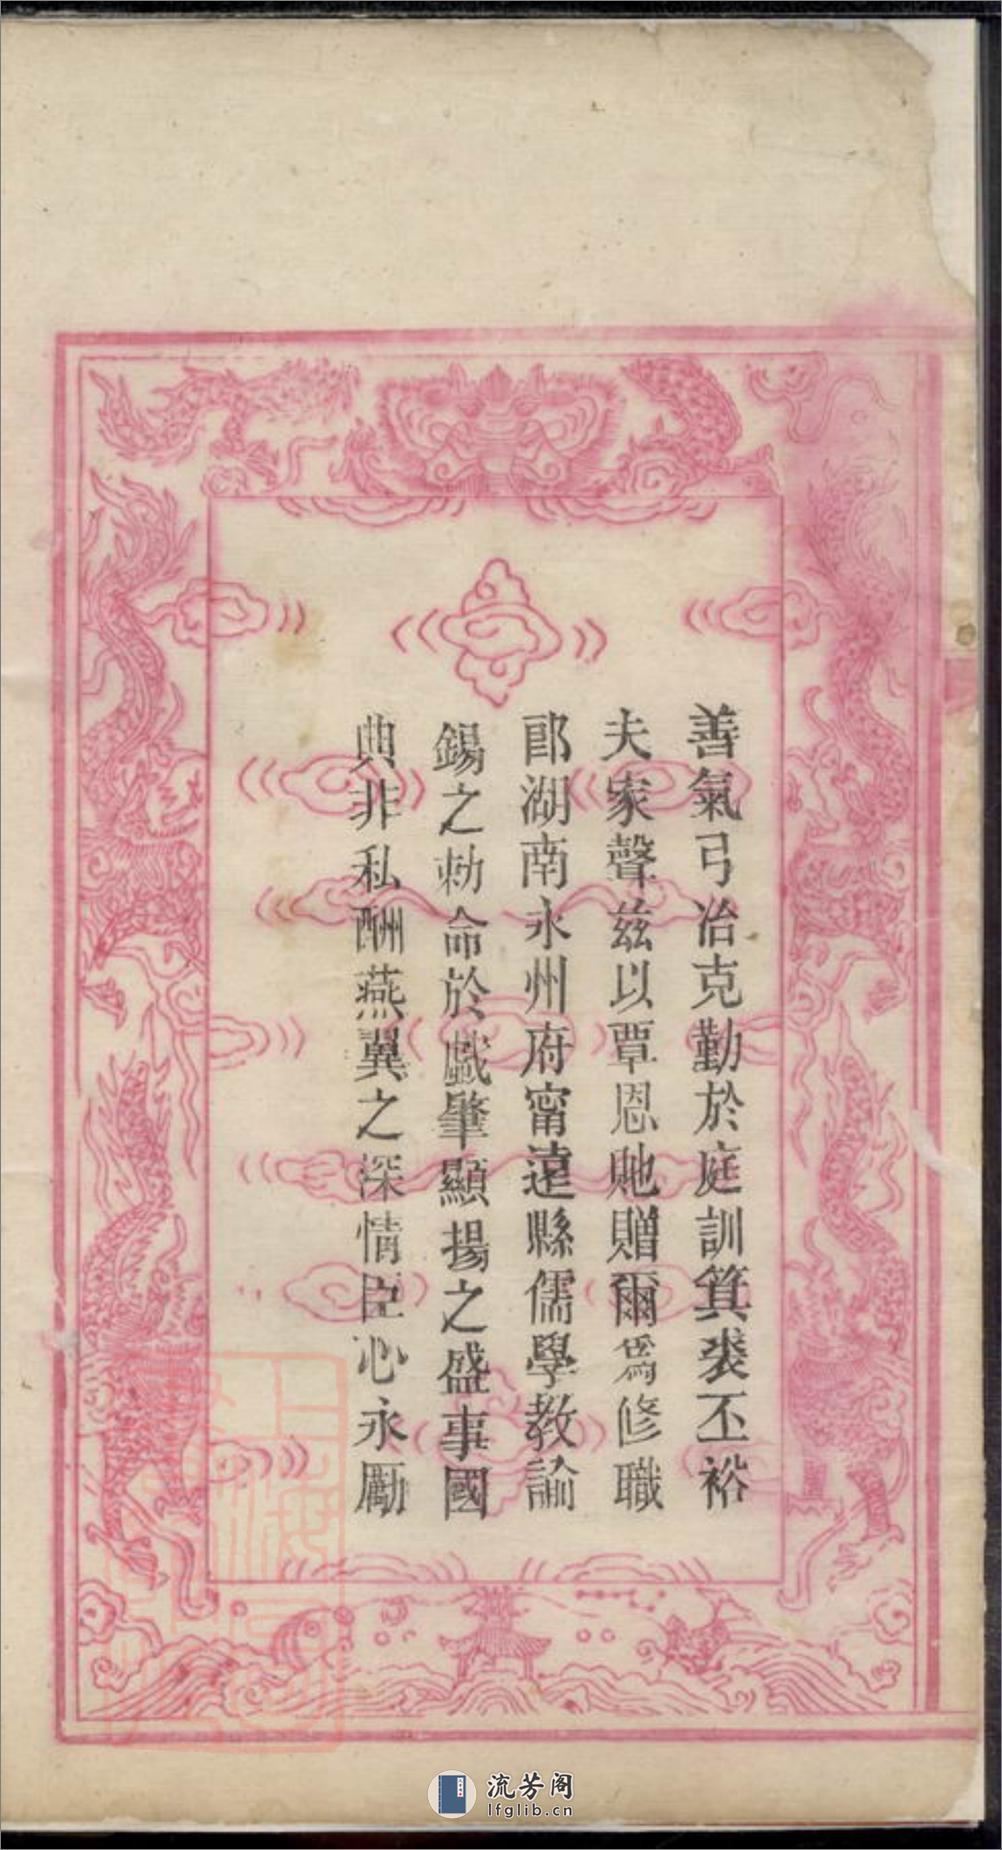 善氣弓冶克勤於庭訓箕裘丕裕
夫家聲兹以覃恩貤贈爾爲修職
郎湖南永州府甯遠縣儒學教諭
錫之勅命於戲肇顯揚之盛事國
典非私酬燕翼之深情臣心永勵
流芳阁
lfglib.cn